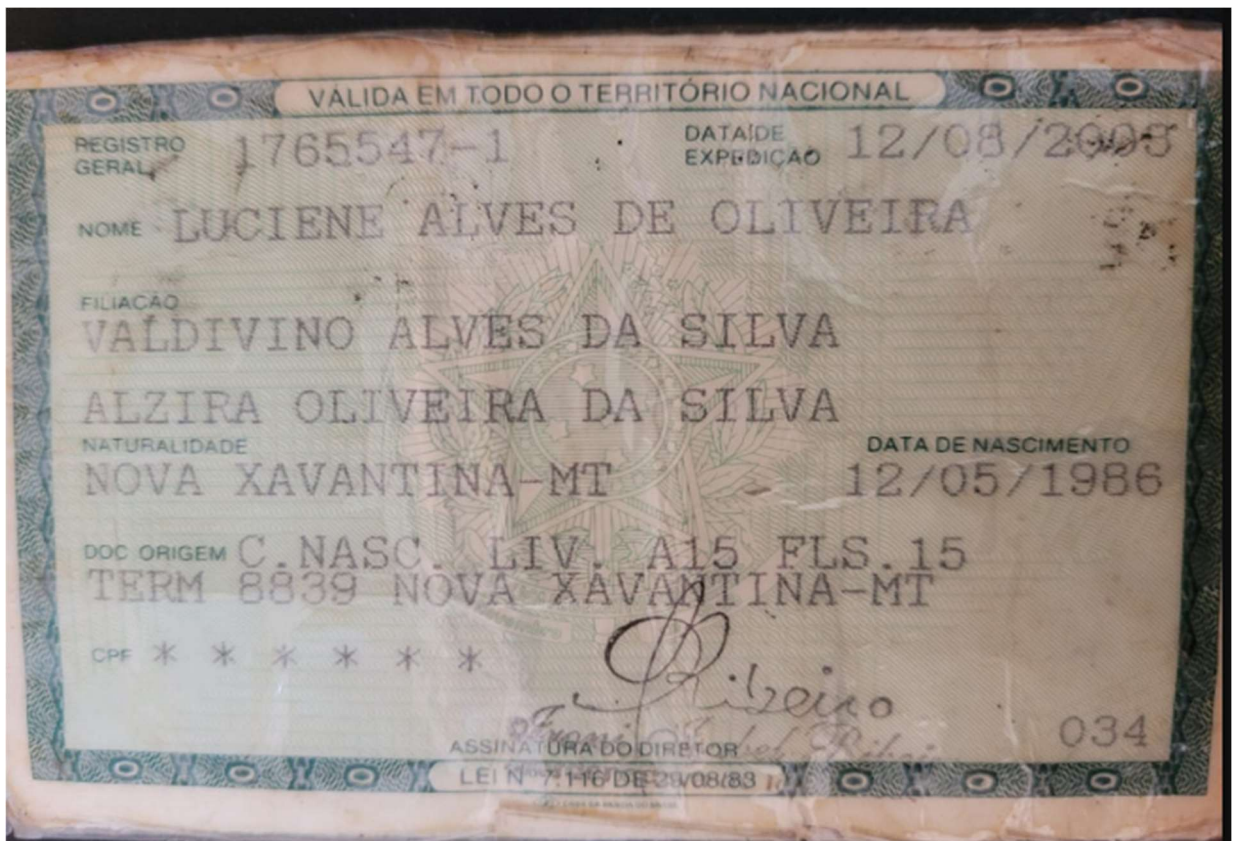 VÁLIDA EM TODO O TERRITÓRIO NACIONAL
REGISTRO GERAL 1765547-1 DATA DE EXPEDIÇÃO 12/08/2003
NOME LUCIENE ALVES DE OLIVEIRA
FILIAÇÃO
VALDIVINO ALVES DA SILVA
ALZIRA OLIVEIRA DA SILVA
NATURALIDADE DATA DE NASCIMENTO
NOVA XAVANTINA-MT 12/05/1986
DOC ORIGEM C.NASC. LIV. A15 FLS.15
TERM 8839 NOVA XAVANTINA-MT
CPF * * * * * *
Ribeiro
034
ASSINATURA DO DIRETOR
LEI Nº 7.116 DE 29/08/83